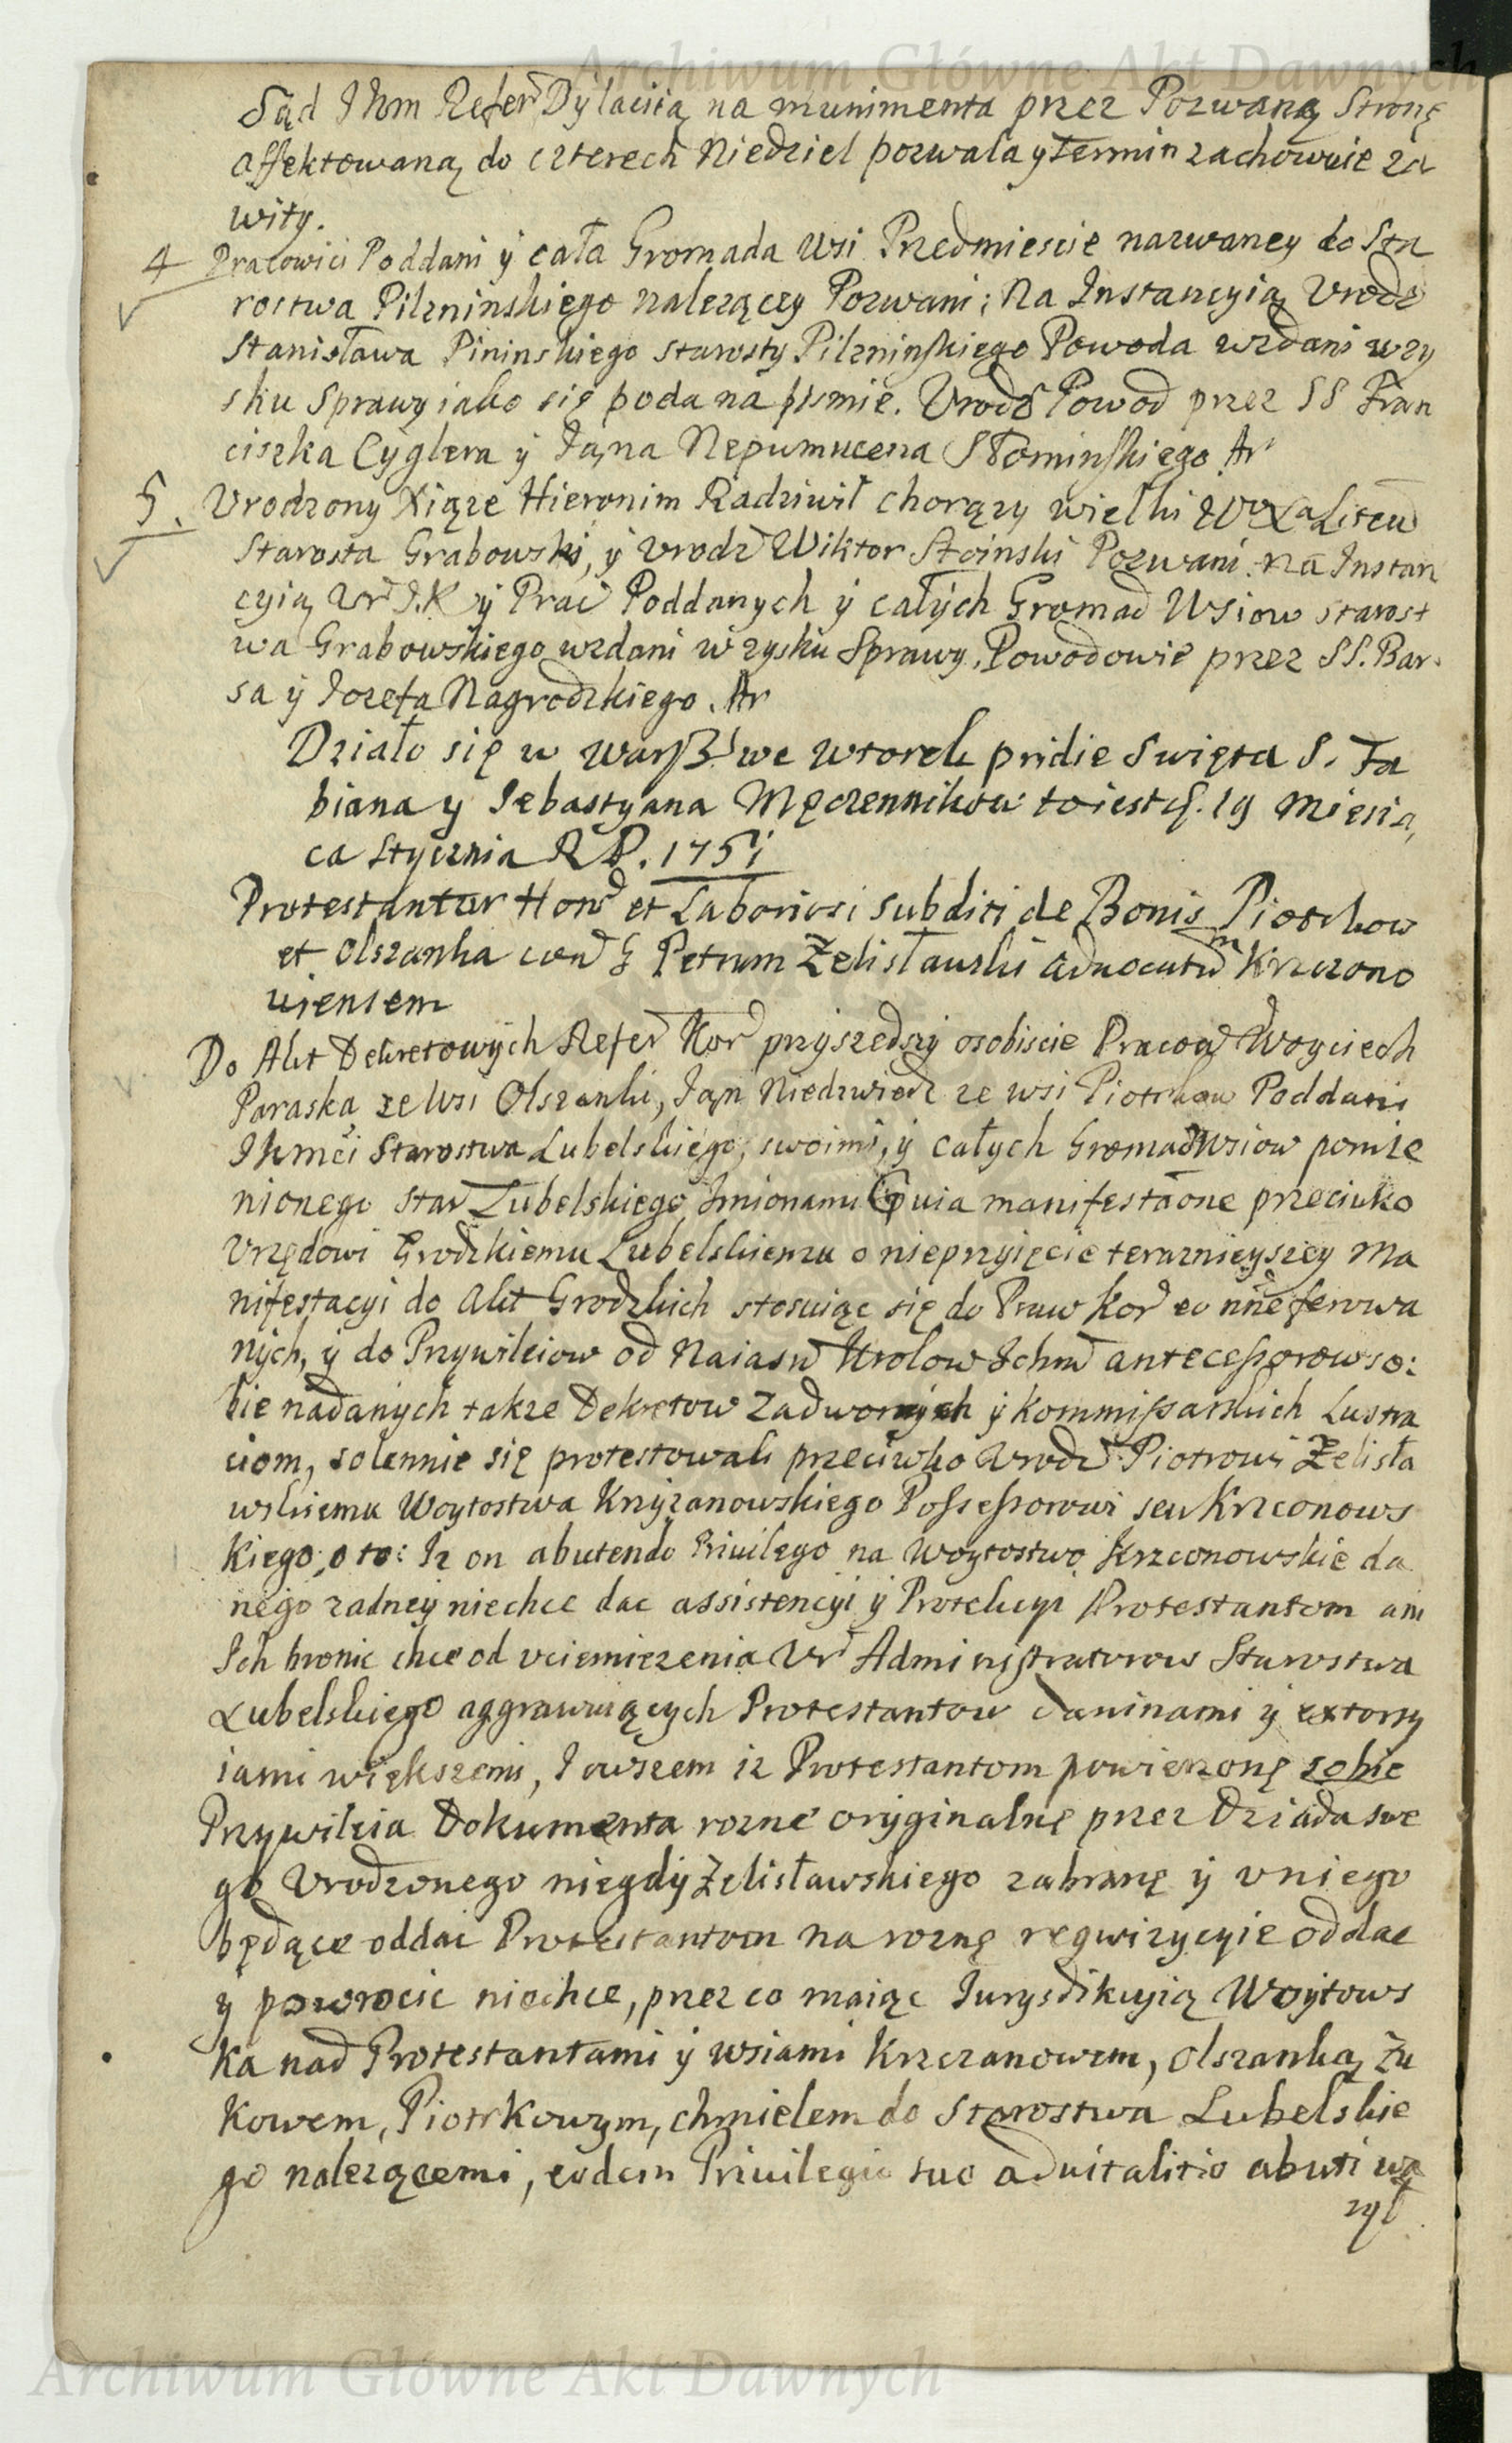 Archiwum Główne Akt Dawnych
Sąd Ihm Refer Dylacią na munimenta przez Pozwaną Stronę
affektowaną do czterech Niedziel pozwala y Termin zachowuie za
wity.
4 Pracowici Poddani ÿ cała Gromada Wsi Przedmiescie nazwaney do Sta
rostwa Pilzninskiego nalezącey Pozwani; Na Instancyią Vrodz
Stanisława Pininskiego Starosty Pilzninskiego Powoda wzdani w zy
sku Sprawy iako się poda na pismie. Vrodz Powod przez SS Fran
ciszka Cyglera ÿ Jana Nepumucena Słominskiego Ar
5. Vrodzony Xiąze Hieronim Radziwił chorązy wielki Litew
Starosta Grabowski, ÿ Vrodz Wiktor Stoinski Pozwani. na Instan
cyią Ur I.K ÿ Prac Poddanych ÿ całych Gromad Wsiow Starost
wa Grabowskiego wzdani w zysku Sprawy, Powodowie przez SS. Bar
sa ÿ Iozefa Nagrodzkiego. Ar
Działo się w Warsz we Wtorek pridie Swięta S. Fa
biana y Sebastyana Męczennikow to iest d. 19 Miesią
ca Stycznia R P. 1751
Protestantur Hon et Laboriosi subditi de Bonis Piotrkow
et Olszanka con G Petrum Zelisławski advocatum Krzczono
viensem
Do Akt Dekretowych Refer Kor przyszedszy osobiscie Pracow Woyciech
Paraska ze Wsi Olszanki, Jan Niedzwiedz ze wsi Piotrkow Poddani
Ikmci Starostwa Lubelskiego, swoimi, ÿ całych Gromad Wsiow pomie
nionego Star Lubelskiego Imionami Qvia manifestaone przeciwko
Vrzędowi Grodzkiemu Lubelskiemu o nieprzyięcie teraznieyszey Ma
nifestacyi do Akt Grodzkich stosuiąc się do Praw Kor eo nne ferowa
nych, ÿ do Przywileiow od Naiasn Krolow Ichm antecessorow so:
bie nadanych takze Dekretow Zadwornych ÿ Kommissarskich Lustra
ciom, solennie się protestowali przeciwko Vrodz Piotrowi Zelisła
wskiemu Woytostwa Krzyzanowskiego Possessorowi seu Krzconows
kiego; o to: Iz on abutendo Privilego na Woytostwo Krzconowskie da
nego zadney niechce dac assistencyi ÿ Protekcyi Protestantom ani
Ich bronic chce od vciemiezenia Ur Administratorow Starostwa
Lubelskiego aggrawuiących Protestantow daninami ÿ extorsy
iami większemi, I owszem iz Protestantom powierzonę sobie
Przywileia Dokumenta rozne oryginalnę przez Dziada swe
go Vrodzonego niegdÿ Zelisławskiego zabranę ÿ v niego
będące oddac Protestantom na roznę reqwizycyie oddac
y powrocic niechce, przez co maiąc Iurysdikcyią Woytows
ka nad Protestantami ÿ wsiami Krzczanowem, Olszanką, Zu
kowem, Piotrkowym, chmielem do Starostwa Lubelskie
go nalezącemi, eodem Privilegio suo advitalitio abuti wa
zył
Archiwum Główne Akt Dawnych